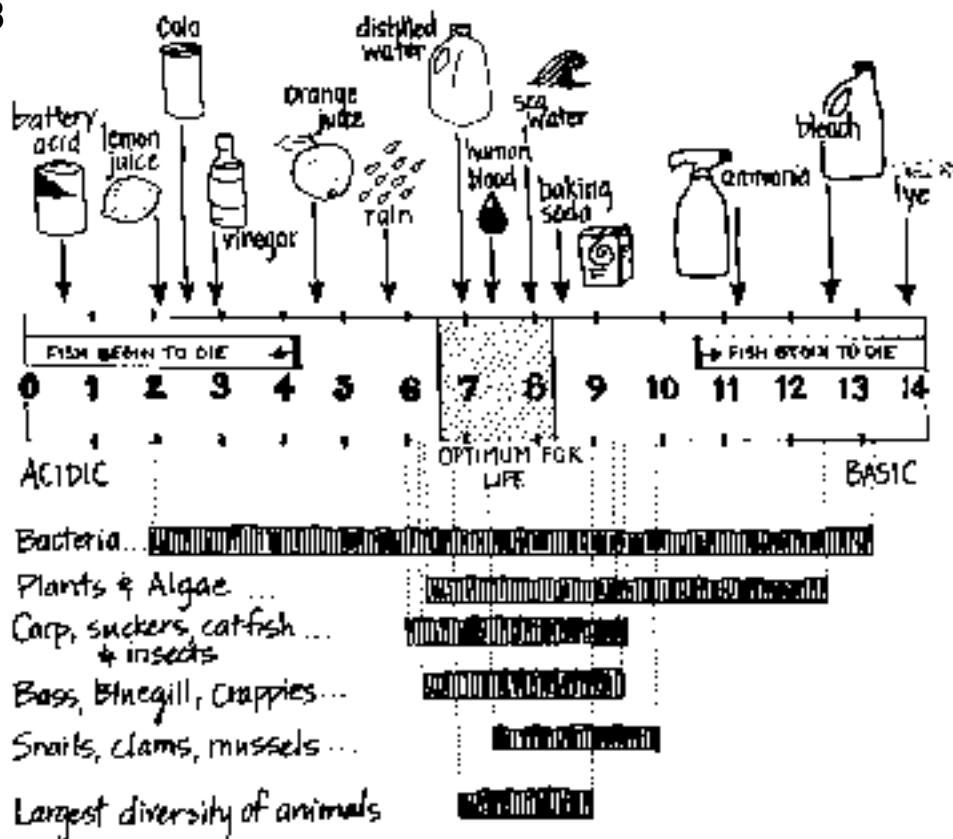 B
Cola
distilled
water
battery
acid
lemon
juice
vinegar
orange
juice
rain
human
blood
sea
water
baking
soda
ammonia
bleach
lye
FISH BEGIN TO DIE
FISH BEGIN TO DIE
0 1 2 3 4 5 6 7 8 9 10 11 12 13 14
ACIDIC
OPTIMUM FOR
LIFE
BASIC
Bacteria...
Plants & Algae ...
Carp, suckers, catfish ...
& insects
Bass, Bluegill, Crappies...
Snails, clams, mussels ...
Largest diversity of animals